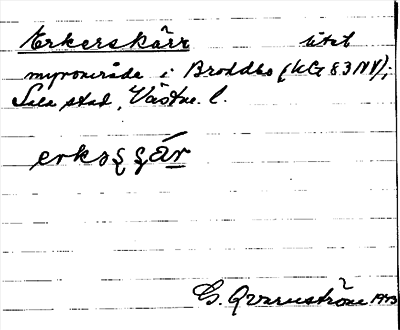 Erkerskärr litet
myrområde i Broddbo (KG 83 NV);
Sala stad, Västm. l.
erkəʂʂär
G. Qvarnström 1943